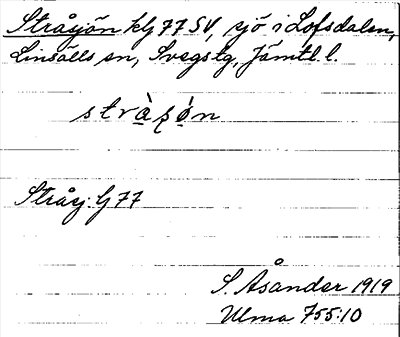 Stråsjön kbg 77 SV, sjö i Lofsdalen,
Linsälls sn, Svegs tg, Jämtl. l.
stràʂó̤n
Stråsj: G 77
S. Åsander 1919
Ulma 755:10